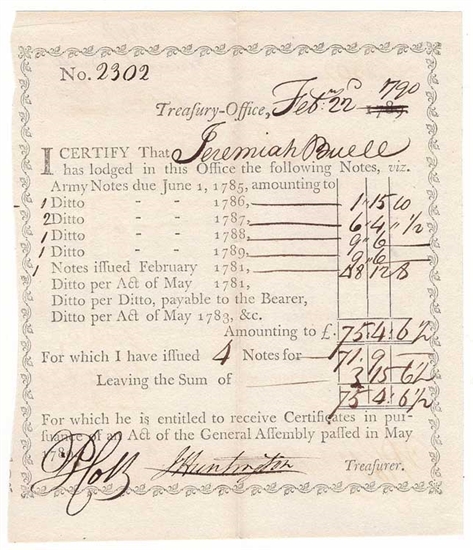 No. 2302
Treasury-Office, Feb.ry 22d 1789 790
I CERTIFY That Jeremiah Buell
has lodged in this Office the following Notes, viz.
Army Notes due June 1, 1785, amounting to
1 Ditto - - 1786, 1 15 10
2 Ditto - - 1787, 6 4 " 1/2
1 Ditto - - 1788, 9 6
1 Ditto - - 1789, 9 6
1 Notes iſſued February 1781, 48 12 8
Ditto per Act of May 1781,
Ditto per Ditto, payable to the Bearer,
Ditto per Act of May 1783, &c.
Amounting to £. 75 4 6 1/2
For which I have iſſued 4 Notes for 71 9
Leaving the Sum of 3 15 6 1/2
75 4 6 1/2
For which he is entitled to receive Certificates in pur-
ſuance of an Act of the General Aſſembly paſſed in May
J Huntington Treasurer.